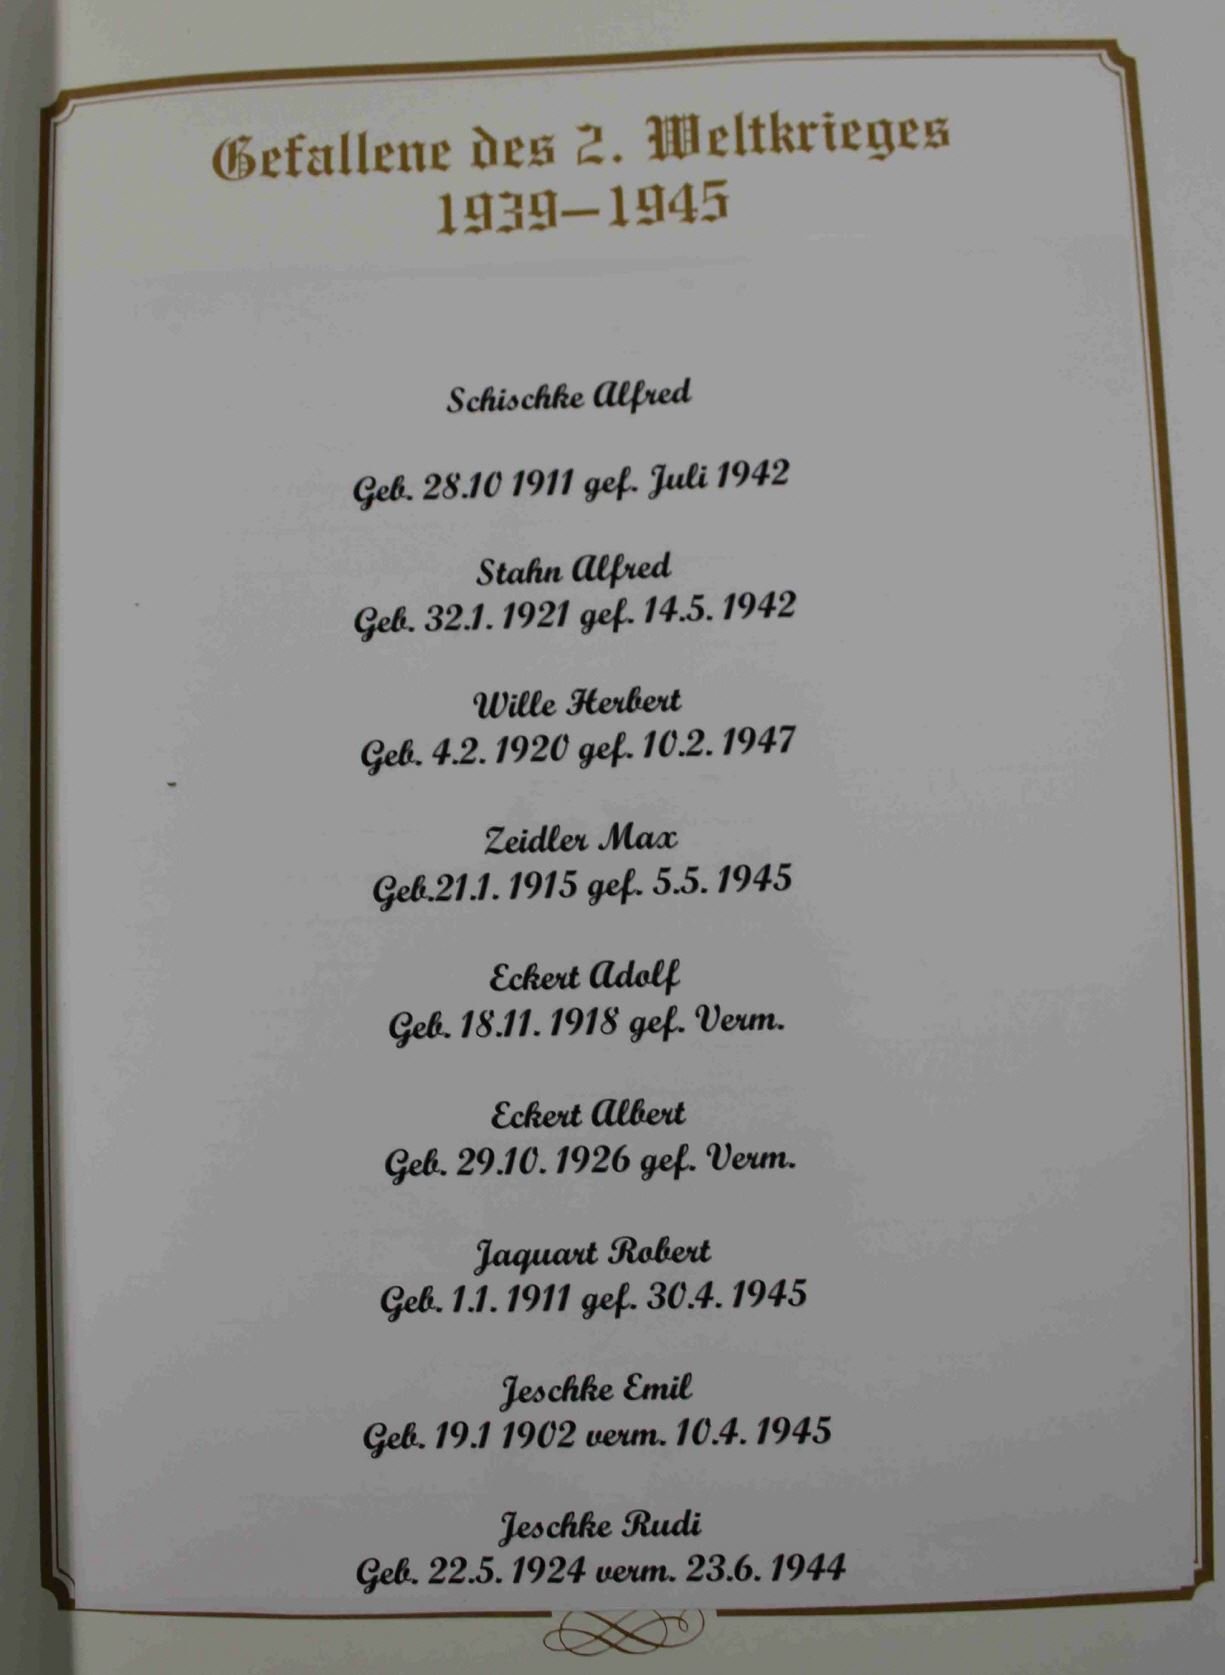 Gefallene des 2. Weltkrieges
1939–1945
Schischke Alfred
Geb. 28.10 1911 gef. Juli 1942
Stahn Alfred
Geb. 32.1. 1921 gef. 14.5. 1942
Wille Herbert
Geb. 4.2. 1920 gef. 10.2. 1947
Zeidler Max
Geb.21.1. 1915 gef. 5.5. 1945
Eckert Adolf
Geb. 18.11. 1918 gef. Verm.
Eckert Albert
Geb. 29.10. 1926 gef. Verm.
Jaquart Robert
Geb. 1.1. 1911 gef. 30.4. 1945
Jeschke Emil
Geb. 19.1 1902 verm. 10.4. 1945
Jeschke Rudi
Geb. 22.5. 1924 verm. 23.6. 1944